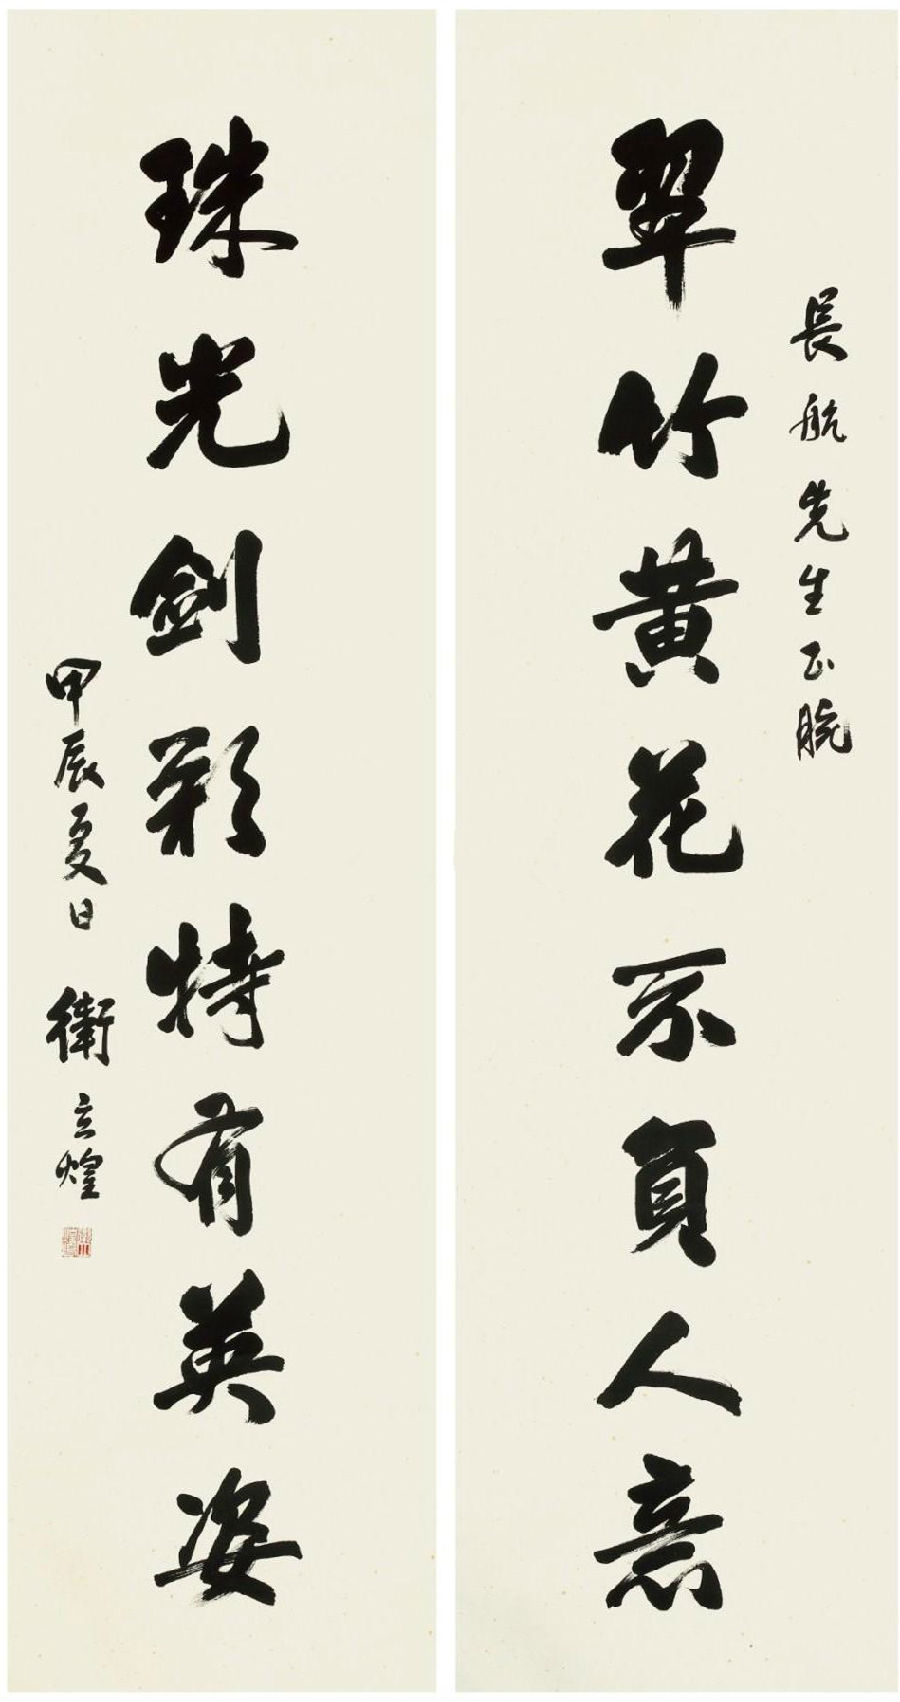 長航先生正腕
翠竹黄花不負人意
珠光劍彩特有英姿
甲辰夏日 衛立煌